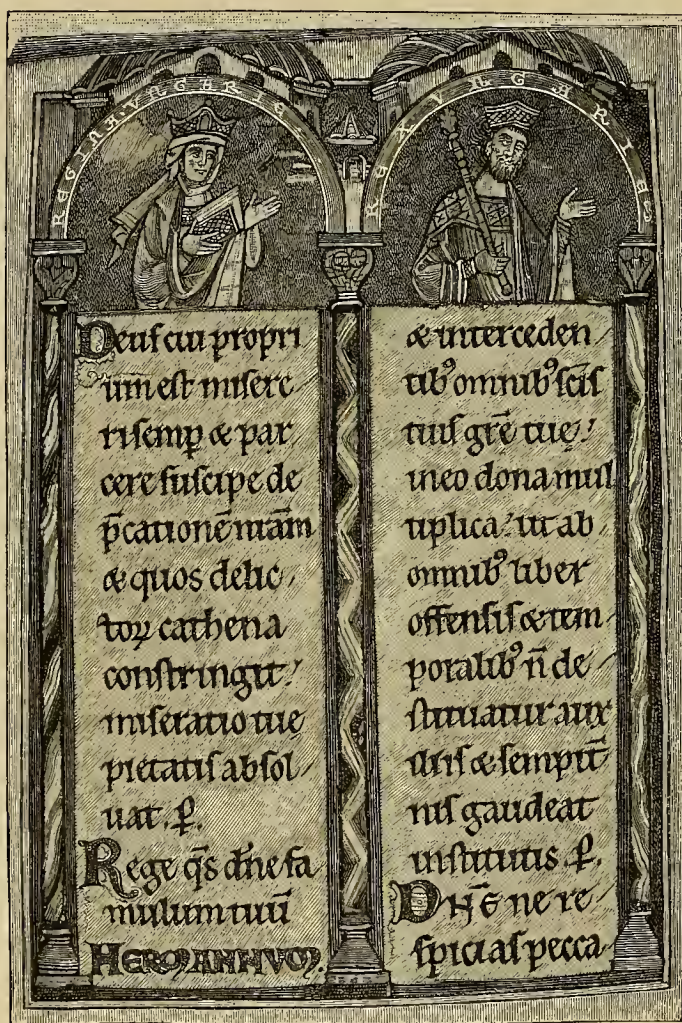 REGINA·VNGARIE
REX VNGARIE
Deuſ cui propri
um eſt miſere
ri ſemp̲ & par
cere ſuſcipe de
p̄cationē nr̄am
& quos delic
toꝝ cathena
conſtringit!
miſeratio tue
pietatiſ abſol
uat. P̲.
Rege q̄s dn̄e fa
mulum tuū
HERMANNVM.
& interceden
tibꝰ omnibꝰ ſcīſ
tuiſ grē tue!
in eo dona mul
tiplica! ut ab
omnibꝰ liber
offenſiſ & tem
poralibꝰ n̄ de
ſtituatur aux
iliiſ & ſempit̄
niſ gaudeat
inſtitutis. P̲.
DNE ne re
ſpiciaſ pecca